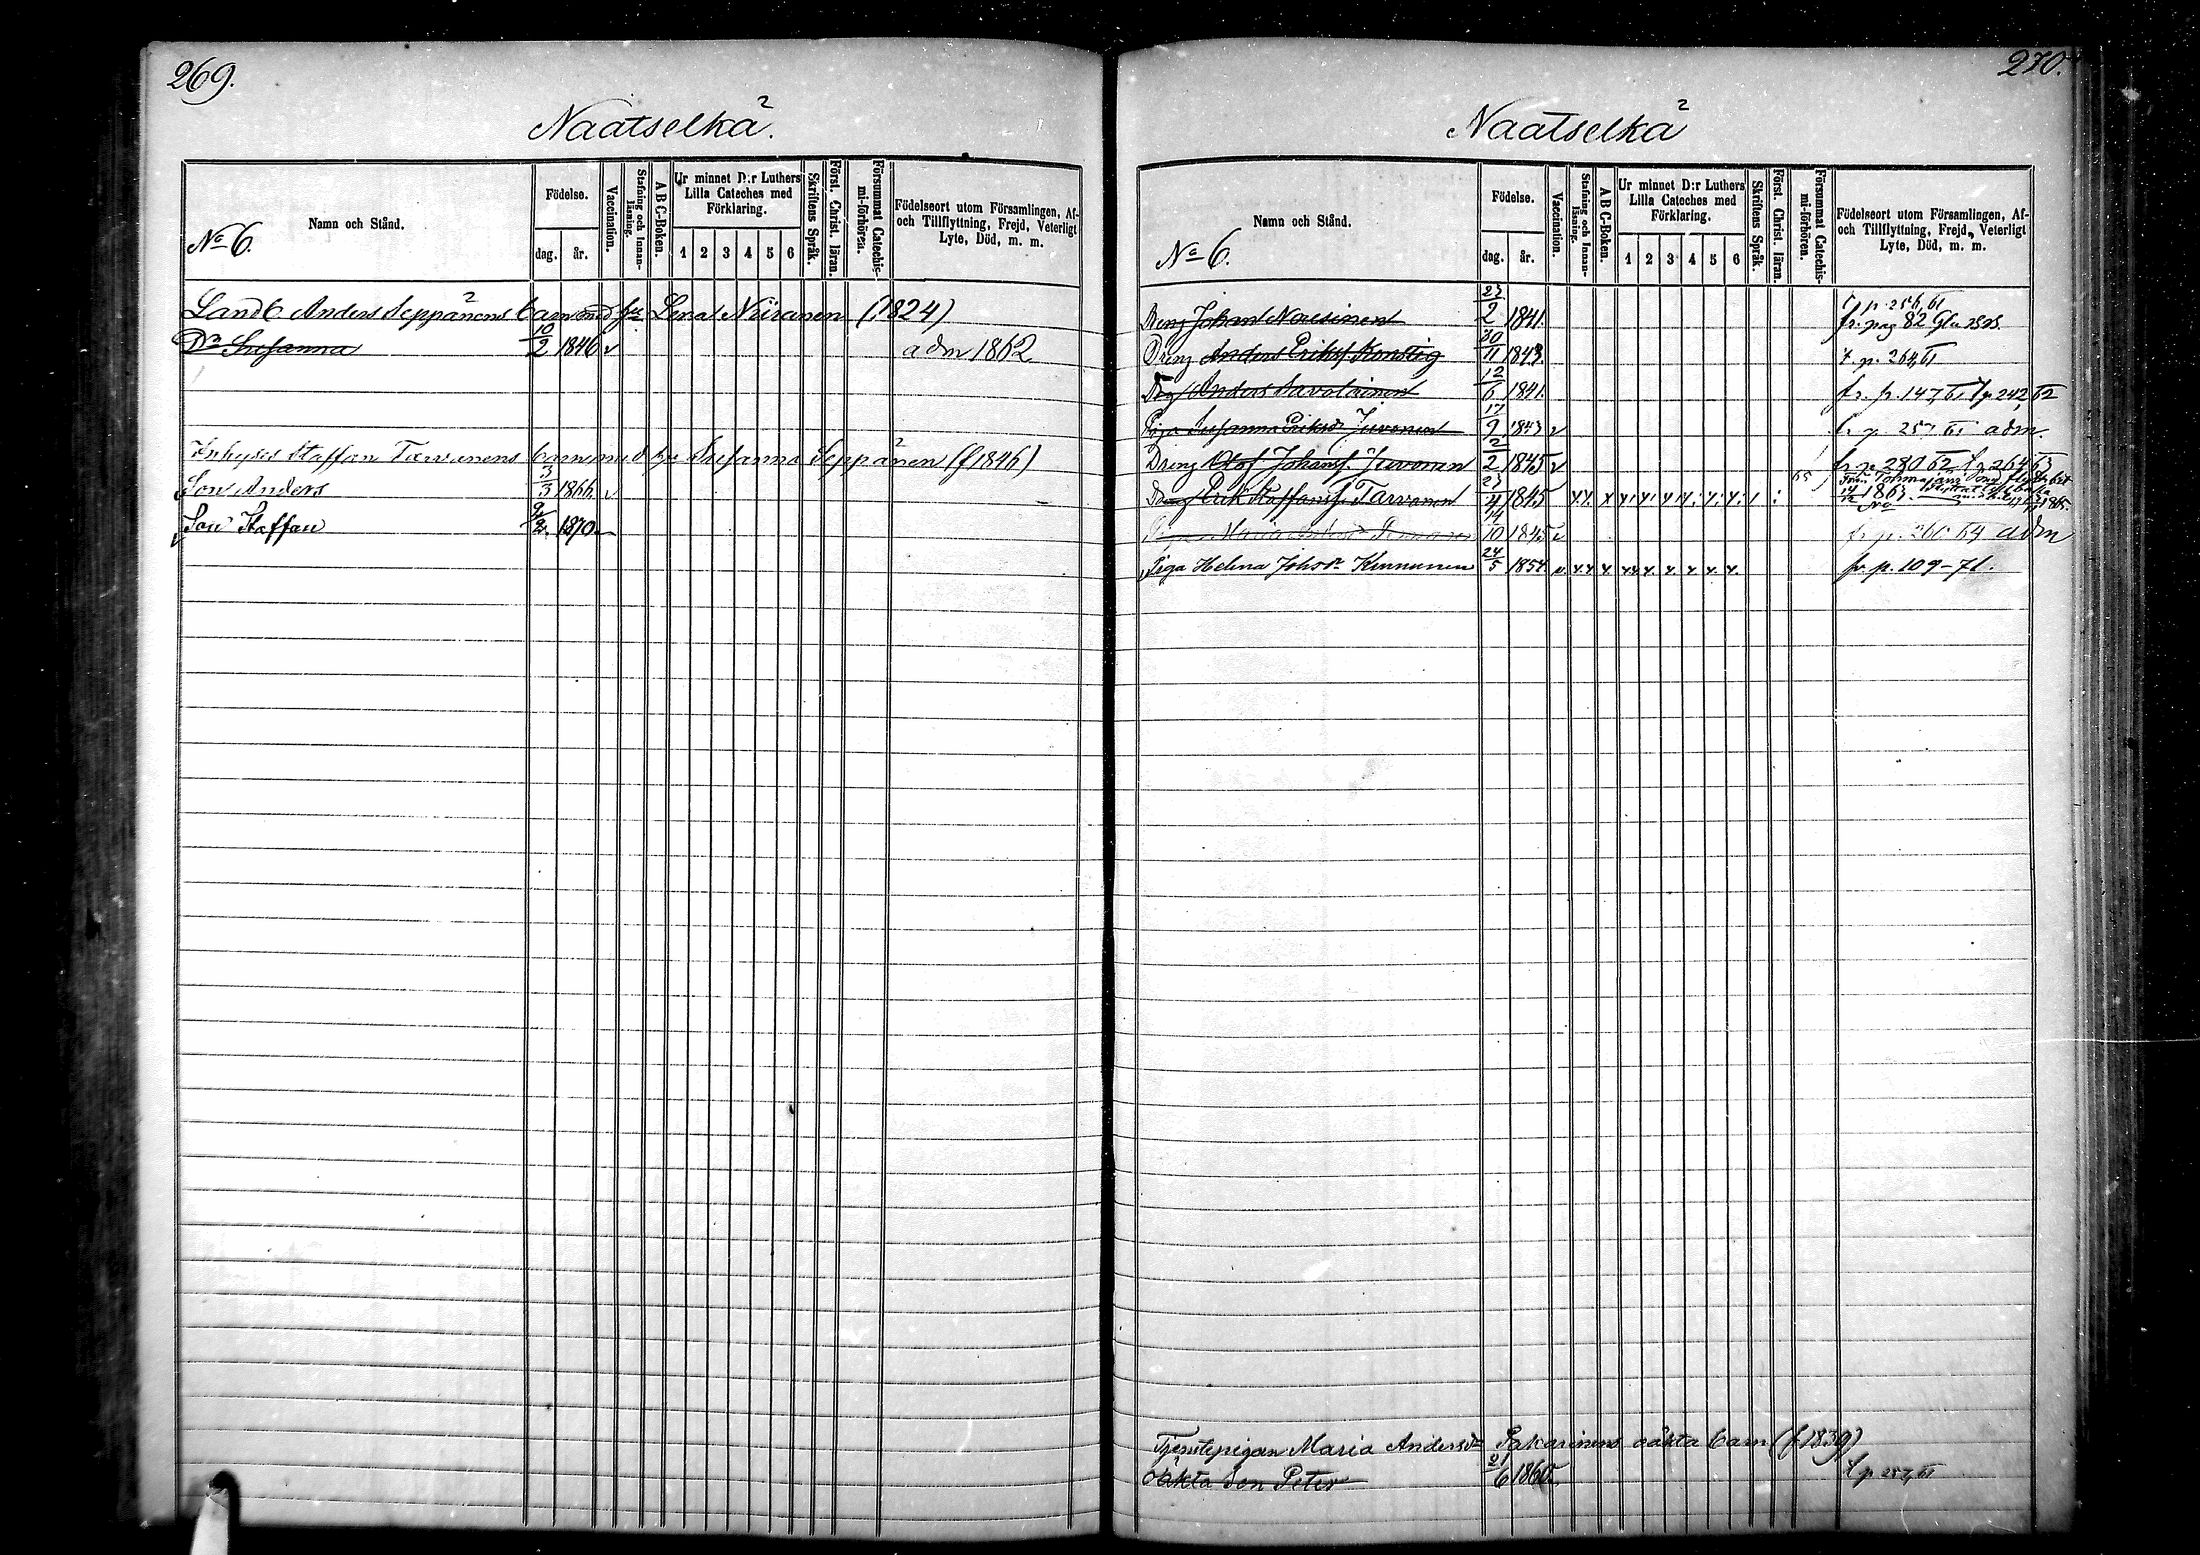 269.
Naatselkä.
No 6.
Namn och Stånd.
Födelse.
dag. år.
Vaccination.
Stafning och Innanläsning.
A B C-Boken.
Ur minnet D:r Luthers Lilla Cateches med Förklaring.
1 2 3 4 5 6
Skriftens Språk.
Först. Christ. läran.
Försummat Catechismi-förhören.
Födelseort utom Församlingen, Af- och Tillflyttning, Frejd, Veterligt Lyte, Död, m. m.
Landb Anders Seppänens barn med Lena Niiranen (1824)
Dr Susanna 10/2 1846 v adm 1862
Inhyses Staffan Tarvanens barn med Susanna Seppänen (f 1846)
Son Anders 3/3 1866 v
Son Staffan 1870
270.
Naatselkä
No 6.
Namn och Stånd.
Födelse.
dag. år.
Vaccination.
Stafning och Innanläsning.
A B C-Boken.
Ur minnet D:r Luthers Lilla Cateches med Förklaring.
1 2 3 4 5 6
Skriftens Språk.
Först. Christ. läran.
Försummat Catechismi-förhören.
Födelseort utom Församlingen, Af- och Tillflyttning, Frejd, Veterligt Lyte, Död, m. m.
p. 256, 61
Dreng Johan Nousinen 23/2 1841. fr. pag 82
Dreng Anders Eriks Konstig 30/11 1843. p. 264, 61
Anders Savolainen 12/6 1841. fr. p. 147, 61 p 242, 62
Piga Susanna Eriksdr Juvonen 17/9 1843 v p. 257 61 adm.
Dreng Olof Johans. Juvonen 2/2 1845 v fr. p. 280 62 p 264 63
Dreng Erik Staffans. Tarvanen 23/4 1845 65
Maria 14/10 1845 v fr. p. 260 64 adm
Piga Helena Johsdr Kinnunen 24/5 1854. fr. p. 109-71.
Tjenstepigan Maria Andersdr Sakarinens oäkta barn (f 1839)
Oäkta Son Peter 21/6 1860. p 257, 61